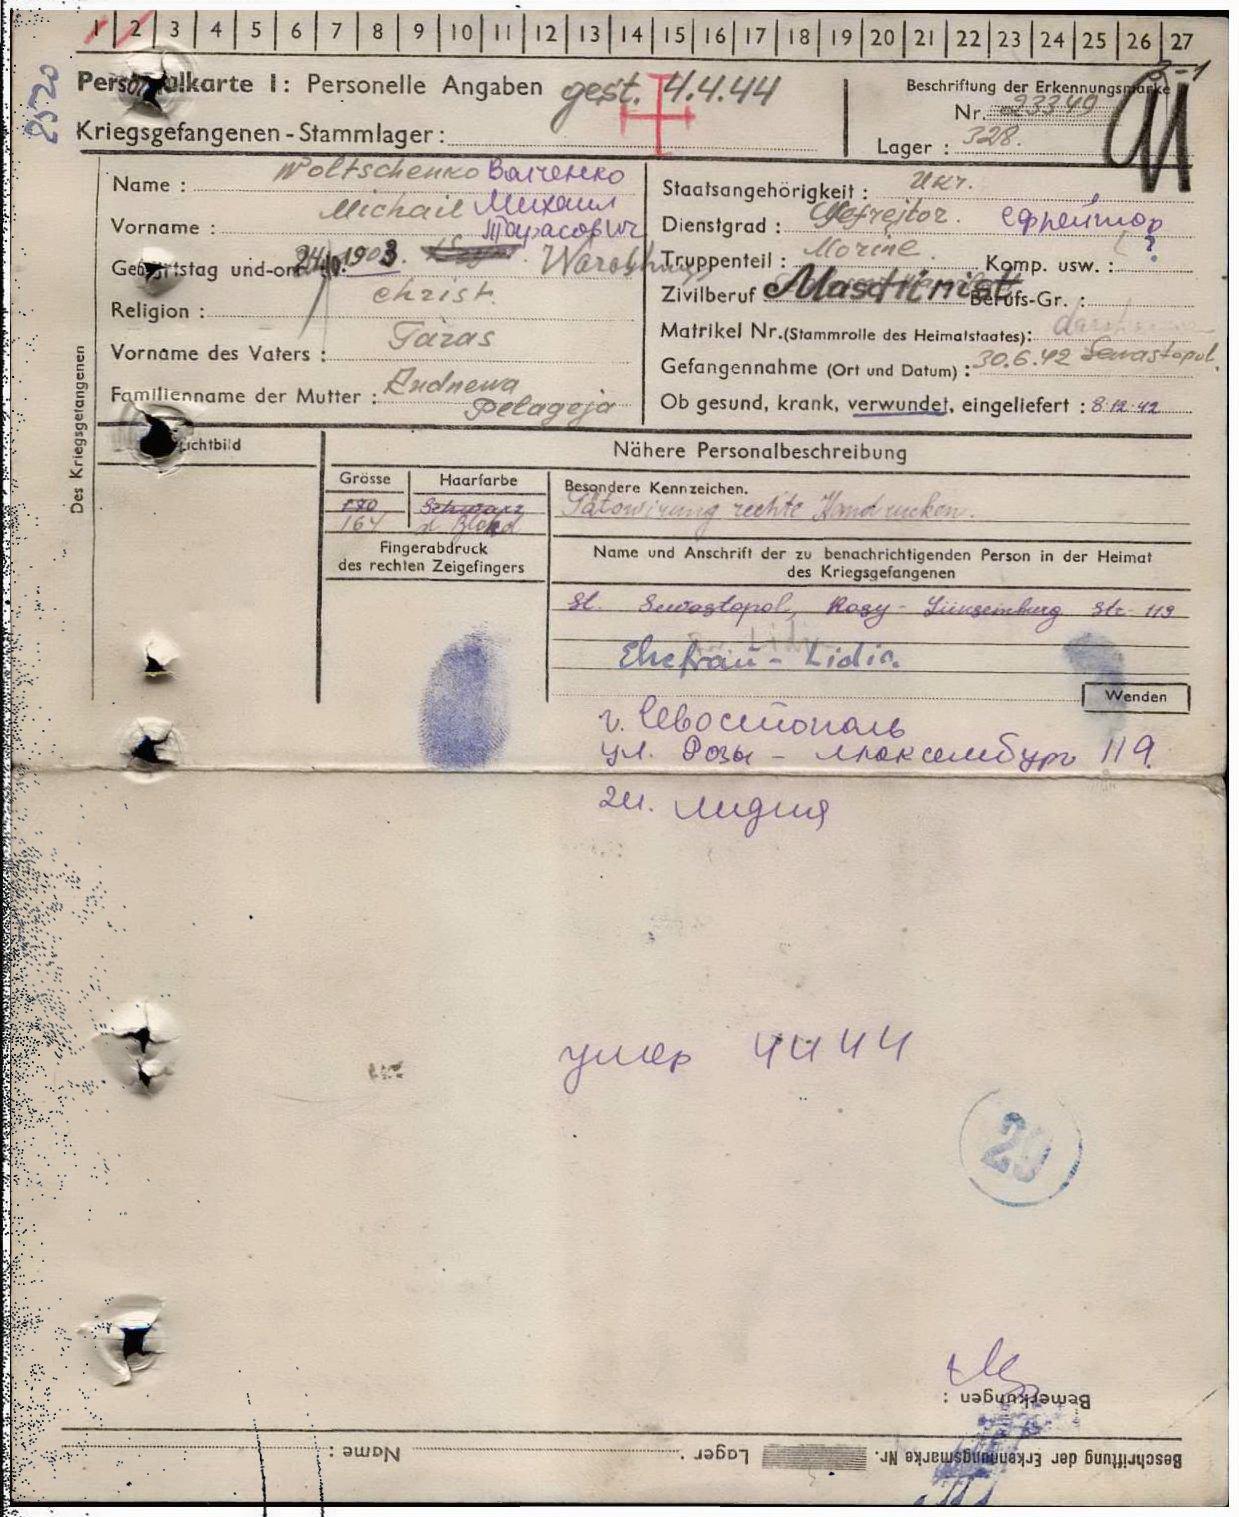 1 2 3 4 5 6 7 8 9 10 11 12 13 14 15 16 17 18 19 20 21 22 23 24 25 26 27
8520
Personalkarte I: Personelle Angaben gest. 4.4.44
Kriegsgefangenen-Stammlager:
Beschriftung der Erkennungsmarke
Nr. 23349
Lager: 328.
Des Kriegsgefangenen
Name: Woltschenko Валченко
Vorname: Michail Михаил
Тарасович
Geburtstag und -ort: 1903.
Religion: christ.
Vorname des Vaters: Taras
Familienname der Mutter: Andnewa
Pelageja
Staatsangehörigkeit: Ukr.
Dienstgrad: Gefrejtor. Ефрейтор
Truppenteil: Morine. Komp. usw.: ?
Zivilberuf Maschinist Berufs-Gr.:
Matrikel Nr. (Stammrolle des Heimatstaates):
Gefangennahme (Ort und Datum): 30.6.42 Sewastopol.
Ob gesund, krank, verwundet, eingeliefert: 8.12.42
Lichtbild
Nähere Personalbeschreibung
Grösse
170
164
Haarfarbe
Schwarz
d. Blond
Besondere Kennzeichen.
Tätowirung rechte Handrucken.
Fingerabdruck
des rechten Zeigefingers
Name und Anschrift der zu benachrichtigenden Person in der Heimat
des Kriegsgefangenen
St. Sewastopol, Rosy-Lüuksemburg Str. 119
Ehefrau - Lidia.
Wenden
г. Севостополь
ул. Розы - Люксембург 119.
Лидия
умер 4 4 44
29
Bemerkungen:
Beschriftung der Erkennungsmarke Nr. Lager: Name: